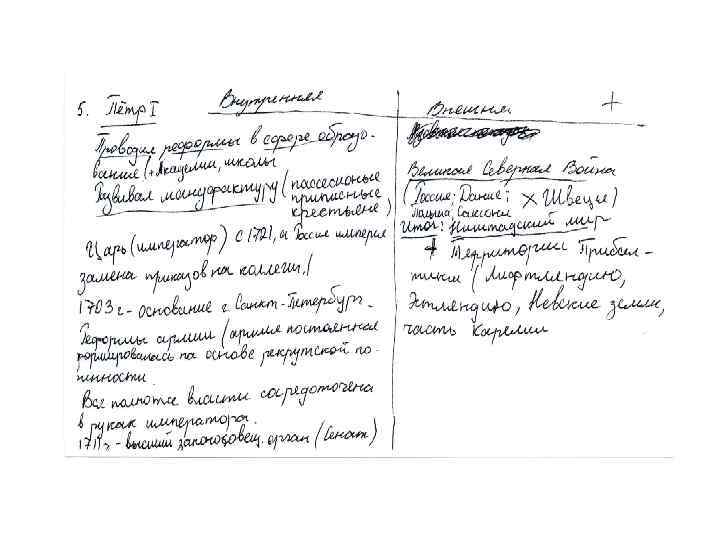 5. Пётр I
Внутренняя
Проводил реформы в сфере образо-
вания (+ Академии, школы
Развивал мануфактуру (пассесионые
приписные
крестьяне)
Царь (император) с 1721, а Россия империя
замена приказов на коллегии/
1703 г - основание г. Санкт-Петербург.
Реформы армии (армия постоянная
формировалась на основе рекрутской по-
винности.
Вся полнота власти сосредоточена
в руках императора.
1711г - высший законодовещ. орган (Сенат)
Внешняя +
Великая Северная Война
(Россия; Дания; х Швеция)
Польша, Саксония
Итог: Ништадский мир
+ Территории Прибал-
тики (Лифтляндию,
Эстляндию, Невские земли,
часть Карелии